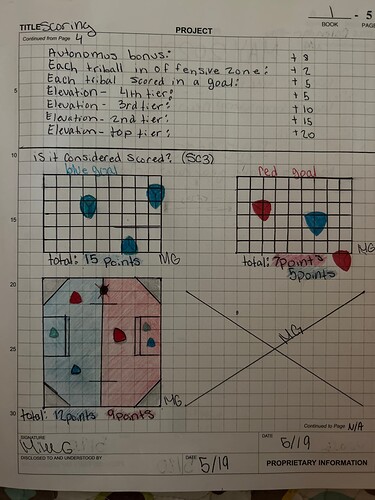 1 - 5
TITLE Scoring PROJECT BOOK PAGE
Continued from Page 4
Autonomus bonus: + 8
Each triball in offensive zone: + 2
Each tribal scored in a goal: + 5
Elevation - 4th tier: + 5
Elevation - 3rd tier: + 10
Elevation - 2nd tier: + 15
Elevation - top tier: + 20
5
10
Is it considered scored? (SC3)
blue goal red goal
15
total: 15 points MG total: 7points MG
5points
20
MG
25
MG
30
total: 12points 9points
Continued to Page N/A
SIGNATURE DATE
5/19
DISCLOSED TO AND UNDERSTOOD BY DATE 5/19 PROPRIETARY INFORMATION